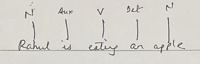 N Aux V Det N
Rahul is eating an apple